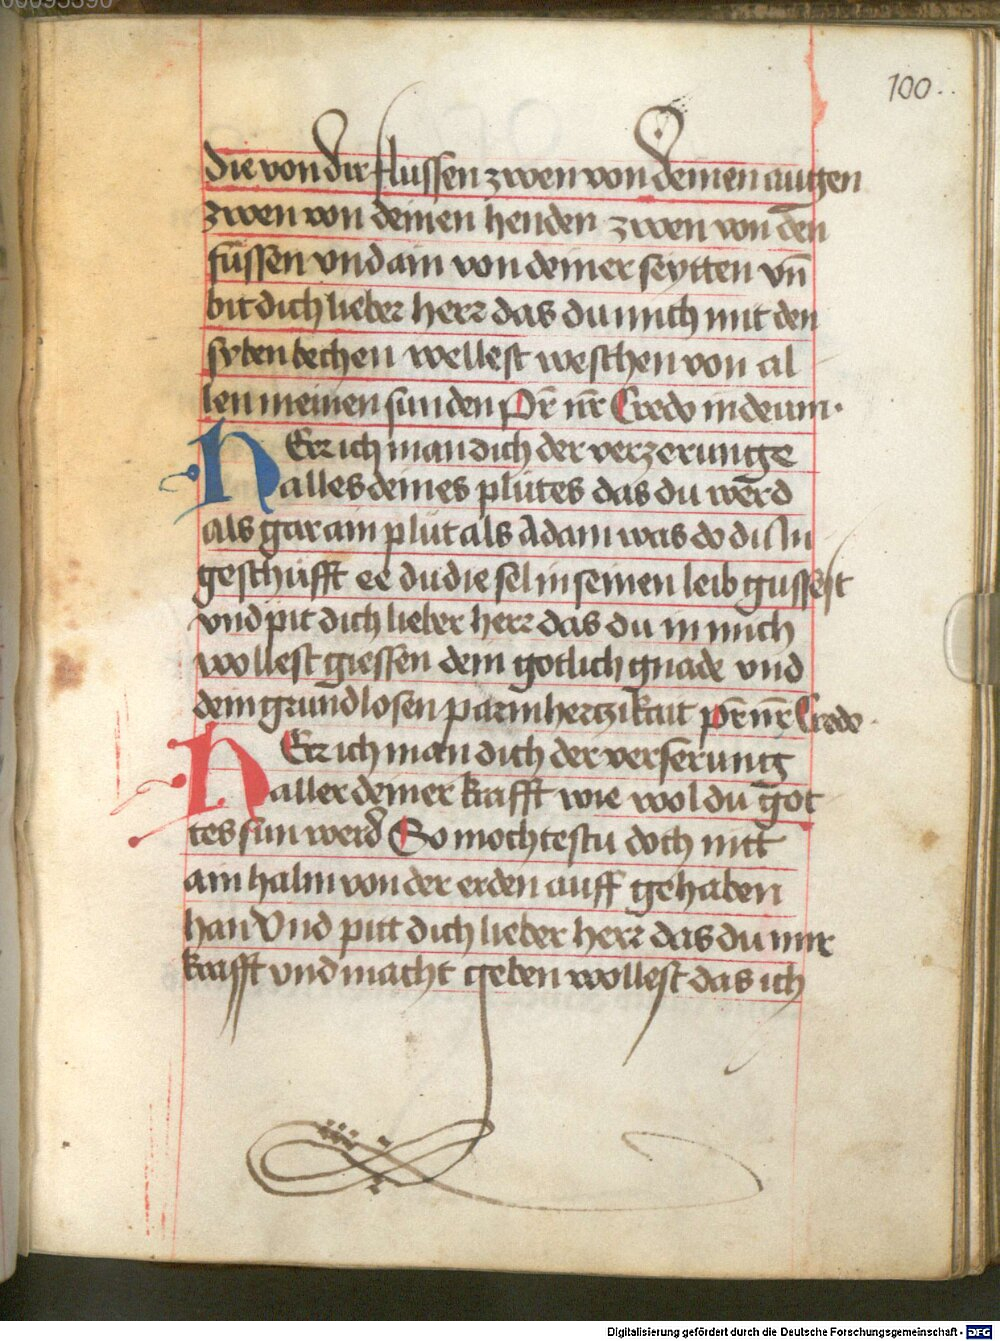 100.
die von dir flussen zwen von deinen augen
zwen von deinen henden zwen von den
füssen vnd ain von deiner seytten vn̄
bit dich lieber herr das du mich mit den
syben bechen wellest weschen von al
len meinen sunden Pr̄ nr̄ Credo in deum.
HErr ich man dich der verzerunge
alles deines plůtes das du werd
als gar ain plůt als Adam was do du In
geschüfft ee du die sel in seinen leib gussest
vnd pit dich lieber herr das du in mich
wollest giessen dein gotlich gnade vnd
dein grundlosen parmhertzikait pr̄ nr̄ Credo
HErr ich man dich der verserung
aller deiner krafft wie wol du got
tes sun werd So mochtestu doch nitt
ain halm von der erden auff gehaben
han Vnd pitt dich lieber herr das du mir
krafft vnd macht geben wollest das ich
Digitalisierung gefördert durch die Deutsche Forschungsgemeinschaft - DFG